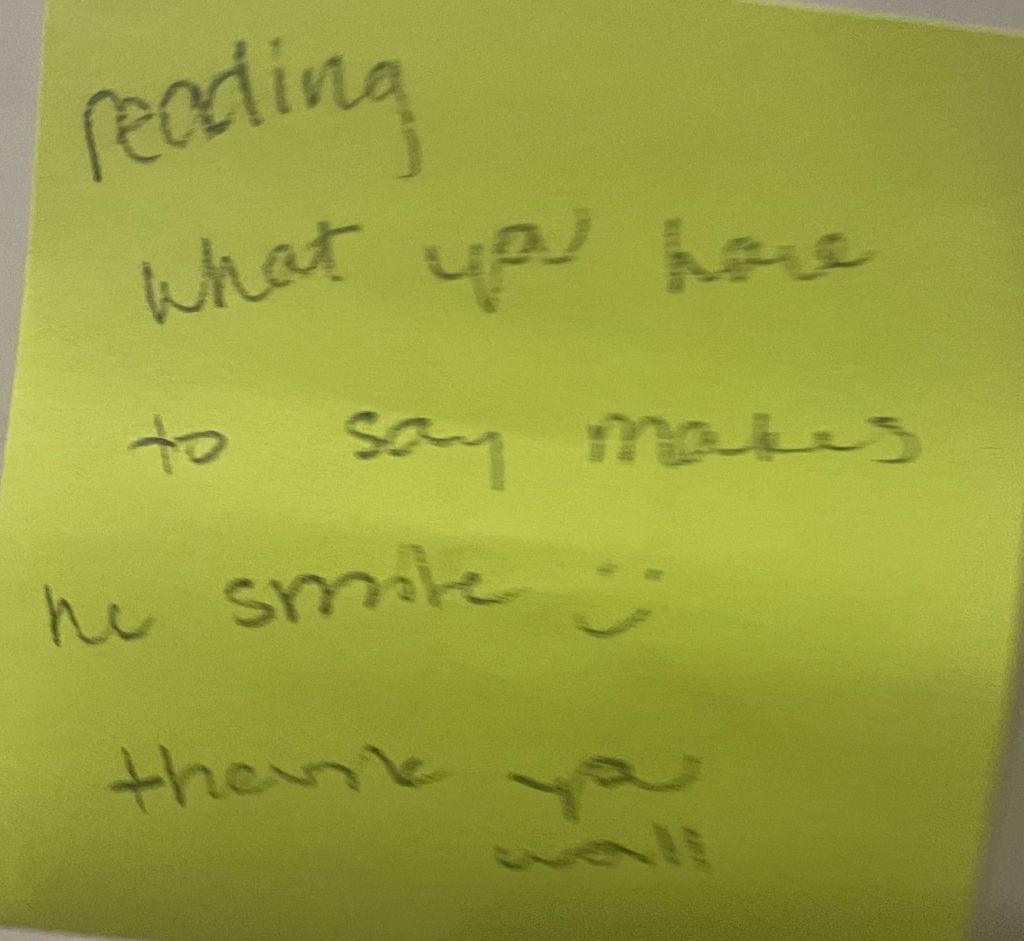 reading
what you have
to say makes
me smile :)
thank you
wall